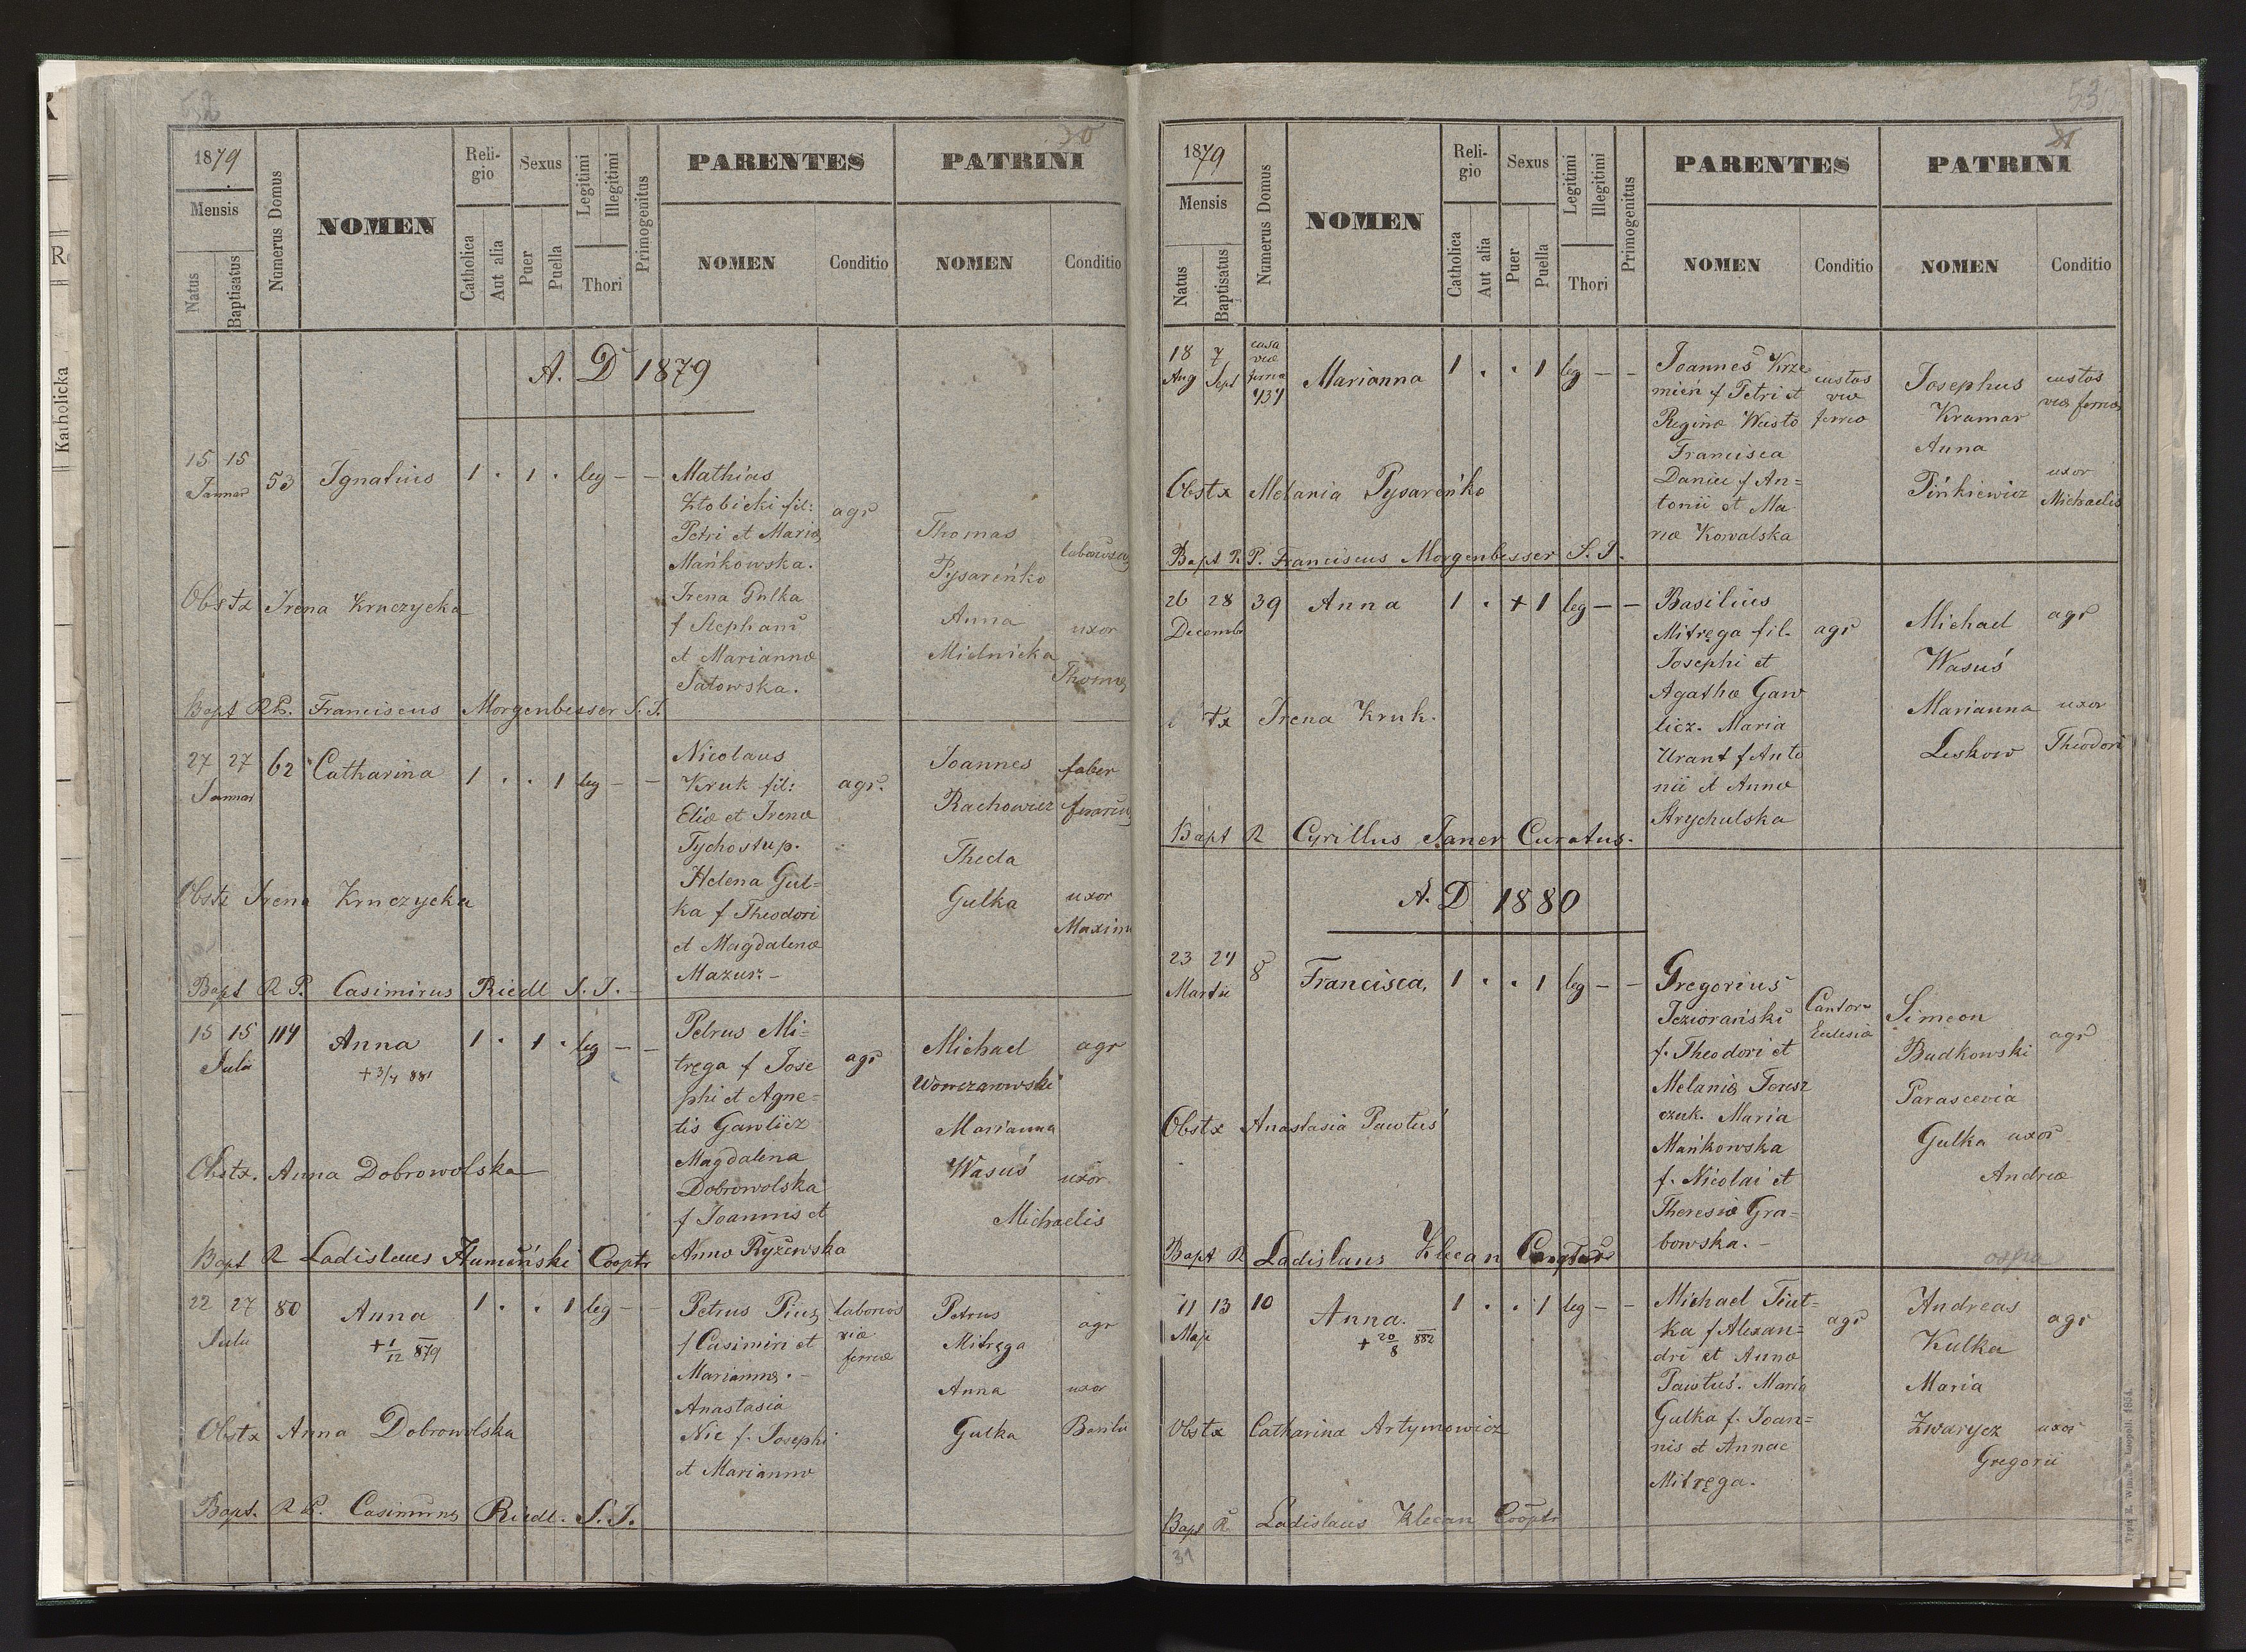 52
1879
Mensis
Natus
Baptisatus
Numerus Domus
NOMEN
Religio
Catholica
Aut alia
Sexus
Puer
Puella
Legitimi
Illegitimi
Thori
Primogenitus
PARENTES
NOMEN
Conditio
PATRINI
NOMEN
Conditio
A. D 1879
15 15 53 Ignatius 1 . 1 . leg – –
Januar
Mathias
Złobicki fil:
Petri et Mariæ
Mańkowska.
Irena Gulka
f Stephani
et Mariannæ
Satowska.
agr
Thomas
Pysareńko
Anna
Mielnicka
uxor
Thomæ
Obstx Irena Kruczycka
Bapt RP. Franciscus Morgenbesser S. J.
27 27 62 Catharina 1 . . 1 leg – –
Januar
Nicolaus
Kruk fil:
Eliæ et Irenæ
Tychostup.
Helena Gul=
ka f Theodori
et Magdalenæ
Mazur. –
agr.
Joannes
Rachowicz
Thecla
Gulka
faber
ferrarius
uxor
Maximi
Obstx Irena Kruczycka
Bapt R P. Casimirus Riedl S. J. –
15 15 114 Anna 1 . 1 . leg – –
Julii
+ 3/4 881
Petrus Mi=
tręga f Jose
phi et Agne=
tis Gawlicz
Magdalena
Dobrowolska
f Joannis et
Annæ Ryżewska
agr
Michael
Wowczarowski
Marianna
Wasuś
agr
uxor
Michaelis
Obstx. Anna Dobrowolska
Bapt R Ladislaus Humiński Cooptr
22 27 80 Anna 1 . . 1 leg – –
Julii
+ 1/12 879
Petrus Pius
f Casimiri et
Mariannæ. –
Anastasia
Nie f. Josephi
et Mariannæ
laborios
viæ
ferreæ
Petrus
Mitręga
Anna
Gulka
agr
uxor
Basilii
Obstx Anna Dobrowolska
Bapt. R P. Casimirus Riedl. S. J.
53
1879
Mensis
Natus
Baptisatus
Numerus Domus
NOMEN
Religio
Catholica
Aut alia
Sexus
Puer
Puella
Legitimi
Illegitimi
Thori
Primogenitus
PARENTES
NOMEN
Conditio
PATRINI
NOMEN
Conditio
18 7
Aug Sept
casa
viæ
ferreæ
137
Marianna 1 . . 1 leg – –
Joannes Krze
mień f Petri et
Reginæ Wasto
Francisca
Daniu f An=
tonii et Ma
riæ Kowalska
custos
viæ
ferreæ
Josephus
Kramar
Anna
Pińkiewicz
custos
viæ ferreæ
uxor
Michaelis
Obstx Melania Pysareńko
Bapt R P. Franciscus Morgenbesser S. J.
26 28 39 Anna 1 . + 1 leg – –
Decembr
Basilius
Mitręga fil.
Josephi et
Agathæ Gaw
licz. Maria
Urant f Anto
nii et Annæ
Strychulska
agr
Michael
Wasuś
Marianna
Leskow
agr
uxor
Theodori
tx Irena Kruk.
Bapt R Cyrillus Janer Curatus.
A. D 1880
23 24 8 Francisca, 1 . . 1 leg – –
Martii
Gregorius
Jeziorański
f. Theodori et
Melaniæ Toresz
czuk. Maria
Mańkowska
f. Nicolai et
Theresiæ Gra=
bowska. –
Cantor
Eclesiæ
Simeon
Budkowski
Parascevia
Gulka uxor
Andreæ
agr
Obstx Anastasia Pawtuś
ospa
Bapt R Ladislaus Klecan Cooptor
11 13 10 Anna. 1 . . 1 leg – –
Maji
+ 20/8 882
Michael Tiut=
ka f Alexan=
dri et Annæ
Pawtuś. Maria
Gulka f. Joan=
nis et Annae
Mitręga.
agr
Andreas
Kulka
Maria
Zwarycz
agr
uxor
Gregorii
Obstx Catharina Artymowicz
Bapt R. Ladislaus Klecan Cooptr
31